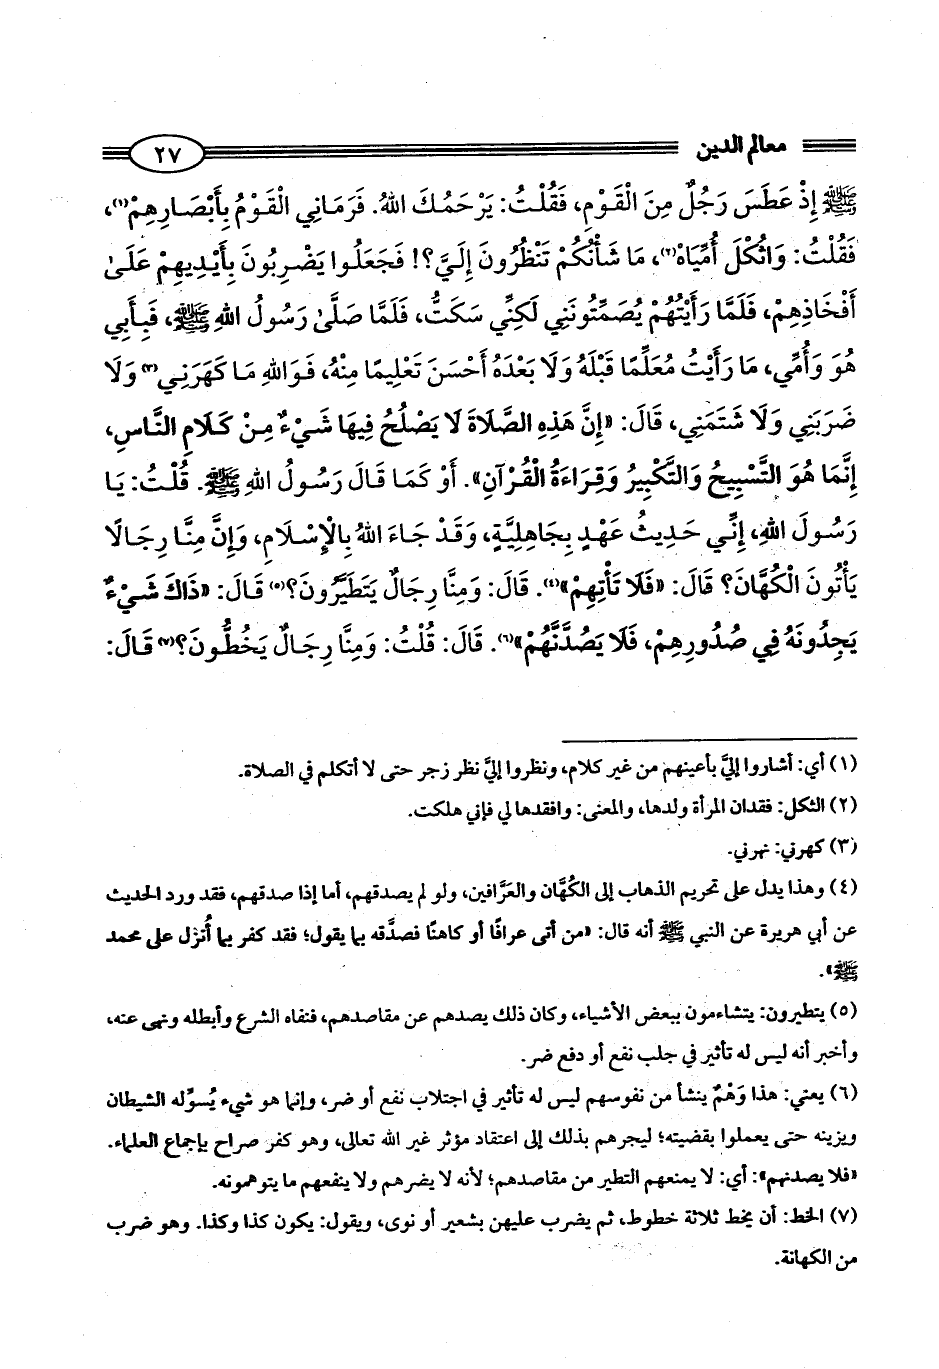 معالم الدين
٢٧
ﷺ إِذْ عَطَسَ رَجُلٌ مِنَ الْقَوْمِ، فَقُلْتُ: يَرْحَمُكَ اللهُ. فَرَمَانِي الْقَوْمُ بِأَبْصَارِهِمْ(١)،
فَقُلْتُ: وَاثُكْلَ أُمِّيَاهْ(٢)، مَا شَأْنُكُمْ تَنْظُرُونَ إِلَيَّ؟! فَجَعَلُوا يَضْرِبُونَ بِأَيْدِيهِمْ عَلَىٰ
أَفْخَاذِهِمْ، فَلَمَّا رَأَيْتُهُمْ يُصَمِّتُونَنِي لَكِنِّي سَكَتُّ، فَلَمَّا صَلَّىٰ رَسُولُ اللهِ ﷺ، فَبِأَبِي
هُوَ وَأُمِّي، مَا رَأَيْتُ مُعَلِّمًا قَبْلَهُ وَلَا بَعْدَهُ أَحْسَنَ تَعْلِيمًا مِنْهُ، فَوَاللهِ مَا كَهَرَنِي(٣) وَلَا
ضَرَبَنِي وَلَا شَتَمَنِي، قَالَ: «إِنَّ هَذِهِ الصَّلَاةَ لَا يَصْلُحُ فِيهَا شَيْءٌ مِنْ كَلَامِ النَّاسِ،
إِنَّمَا هُوَ التَّسْبِيحُ وَالتَّكْبِيرُ وَقِرَاءَةُ الْقُرْآنِ». أَوْ كَمَا قَالَ رَسُولُ اللهِ ﷺ. قُلْتُ: يَا
رَسُولَ اللهِ، إِنِّي حَدِيثُ عَهْدٍ بِجَاهِلِيَّةٍ، وَقَدْ جَاءَ اللهُ بِالْإِسْلَامِ، وَإِنَّ مِنَّا رِجَالًا
يَأْتُونَ الْكُهَّانَ؟ قَالَ: «فَلَا تَأْتِهِمْ»(٤). قَالَ: وَمِنَّا رِجَالٌ يَتَطَيَّرُونَ؟(٥) قَالَ: «ذَاكَ شَيْءٌ
يَجِدُونَهُ فِي صُدُورِهِمْ، فَلَا يَصُدَّنَّهُمْ»(٦). قَالَ: قُلْتُ: وَمِنَّا رِجَالٌ يَخُطُّونَ؟(٧) قَالَ:
(١) أي: أشاروا إليَّ بأعينهم من غير كلام، ونظروا إليَّ نظر زجر حتى لا أتكلم في الصلاة.
(٢) الثكل: فقدان المرأة ولدها، والمعنى: وافقدها لي فإني هلكت.
(٣) كهرني: نهرني.
(٤) وهذا يدل على تحريم الذهاب إلى الكُهَّان والعرَّافين، ولو لم يصدقهم، أما إذا صدقهم، فقد ورد الحديث
عن أبي هريرة عن النبي ﷺ أنه قال: «من أتى عرافًا أو كاهنًا فصدَّقه بما يقول؛ فقد كفر بما أُنزل على محمد
ﷺ».
(٥) يتطيرون: يتشاءمون ببعض الأشياء، وكان ذلك يصدهم عن مقاصدهم، فنفاه الشرع وأبطله ونهى عنه،
وأخبر أنه ليس له تأثير في جلب نفع أو دفع ضر.
(٦) يعني: هذا وَهْمٌ ينشأ من نفوسهم ليس له تأثير في اجتلاب نفع أو ضر، وإنما هو شيء يُسوِّله الشيطان
ويزينه حتى يعملوا بقضيته؛ ليجرهم بذلك إلى اعتقاد مؤثر غير الله تعالى، وهو كفر صراح بإجماع العلماء.
«فلا يصدنهم»: أي: لا يمنعهم التطير من مقاصدهم؛ لأنه لا يضرهم ولا ينفعهم ما يتوهمونه.
(٧) الخط: أن يخط ثلاثة خطوط، ثم يضرب عليهن بشعير أو نوى، ويقول: يكون كذا وكذا. وهو ضرب
من الكهانة.